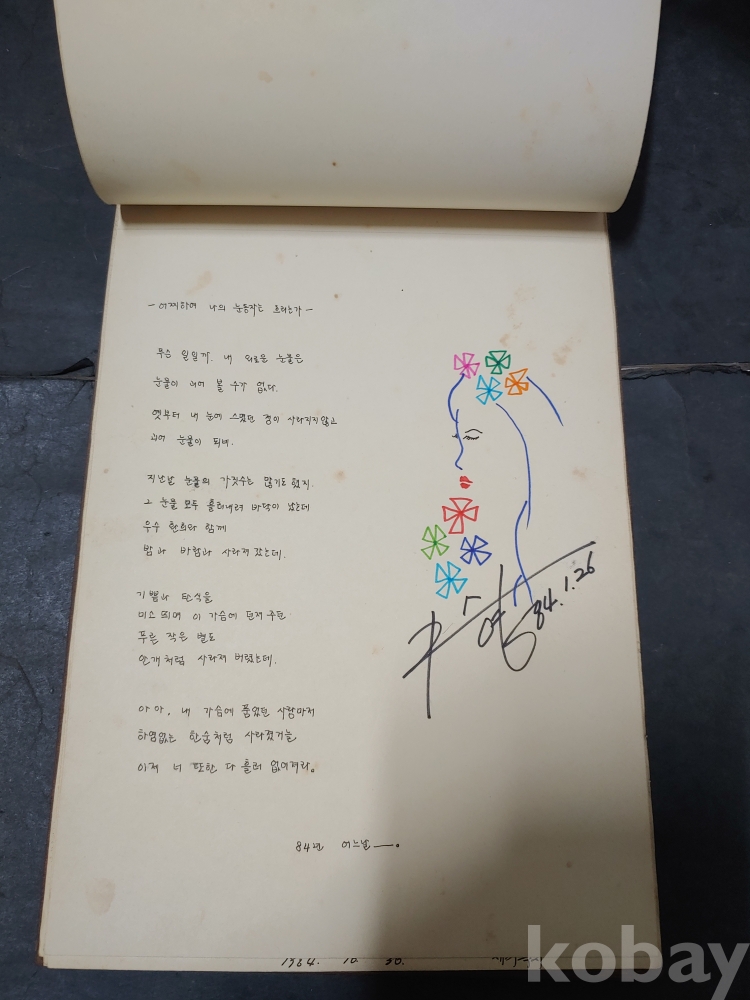 - 어찌하여 나의 눈동자는 흐리는가 -
무슨 일일까. 내 외로운 눈물은
눈물이 괴어 볼 수가 없다.
옛부터 내 눈에 스몄던 것이 사라지지 않고
괴어 눈물이 되네.
지난날 눈물의 가짓수는 많기도 했지.
그 눈물 모두 흘러내려 바닥이 났는데
우수 환희와 함께
밤과 바람과 사라져 갔는데.
기쁨과 탄식을
미소 띄며 이 가슴에 던져 주던
푸른 작은 별도
안개처럼 사라져 버렸는데.
아아, 내 가슴에 품었던 사랑마저
하염없는 한숨처럼 사라졌거늘
이제 너 또한 다 흘러 없어져라。
84년 어느날 —。
84.1.26
1984. 10. 30.
kobay